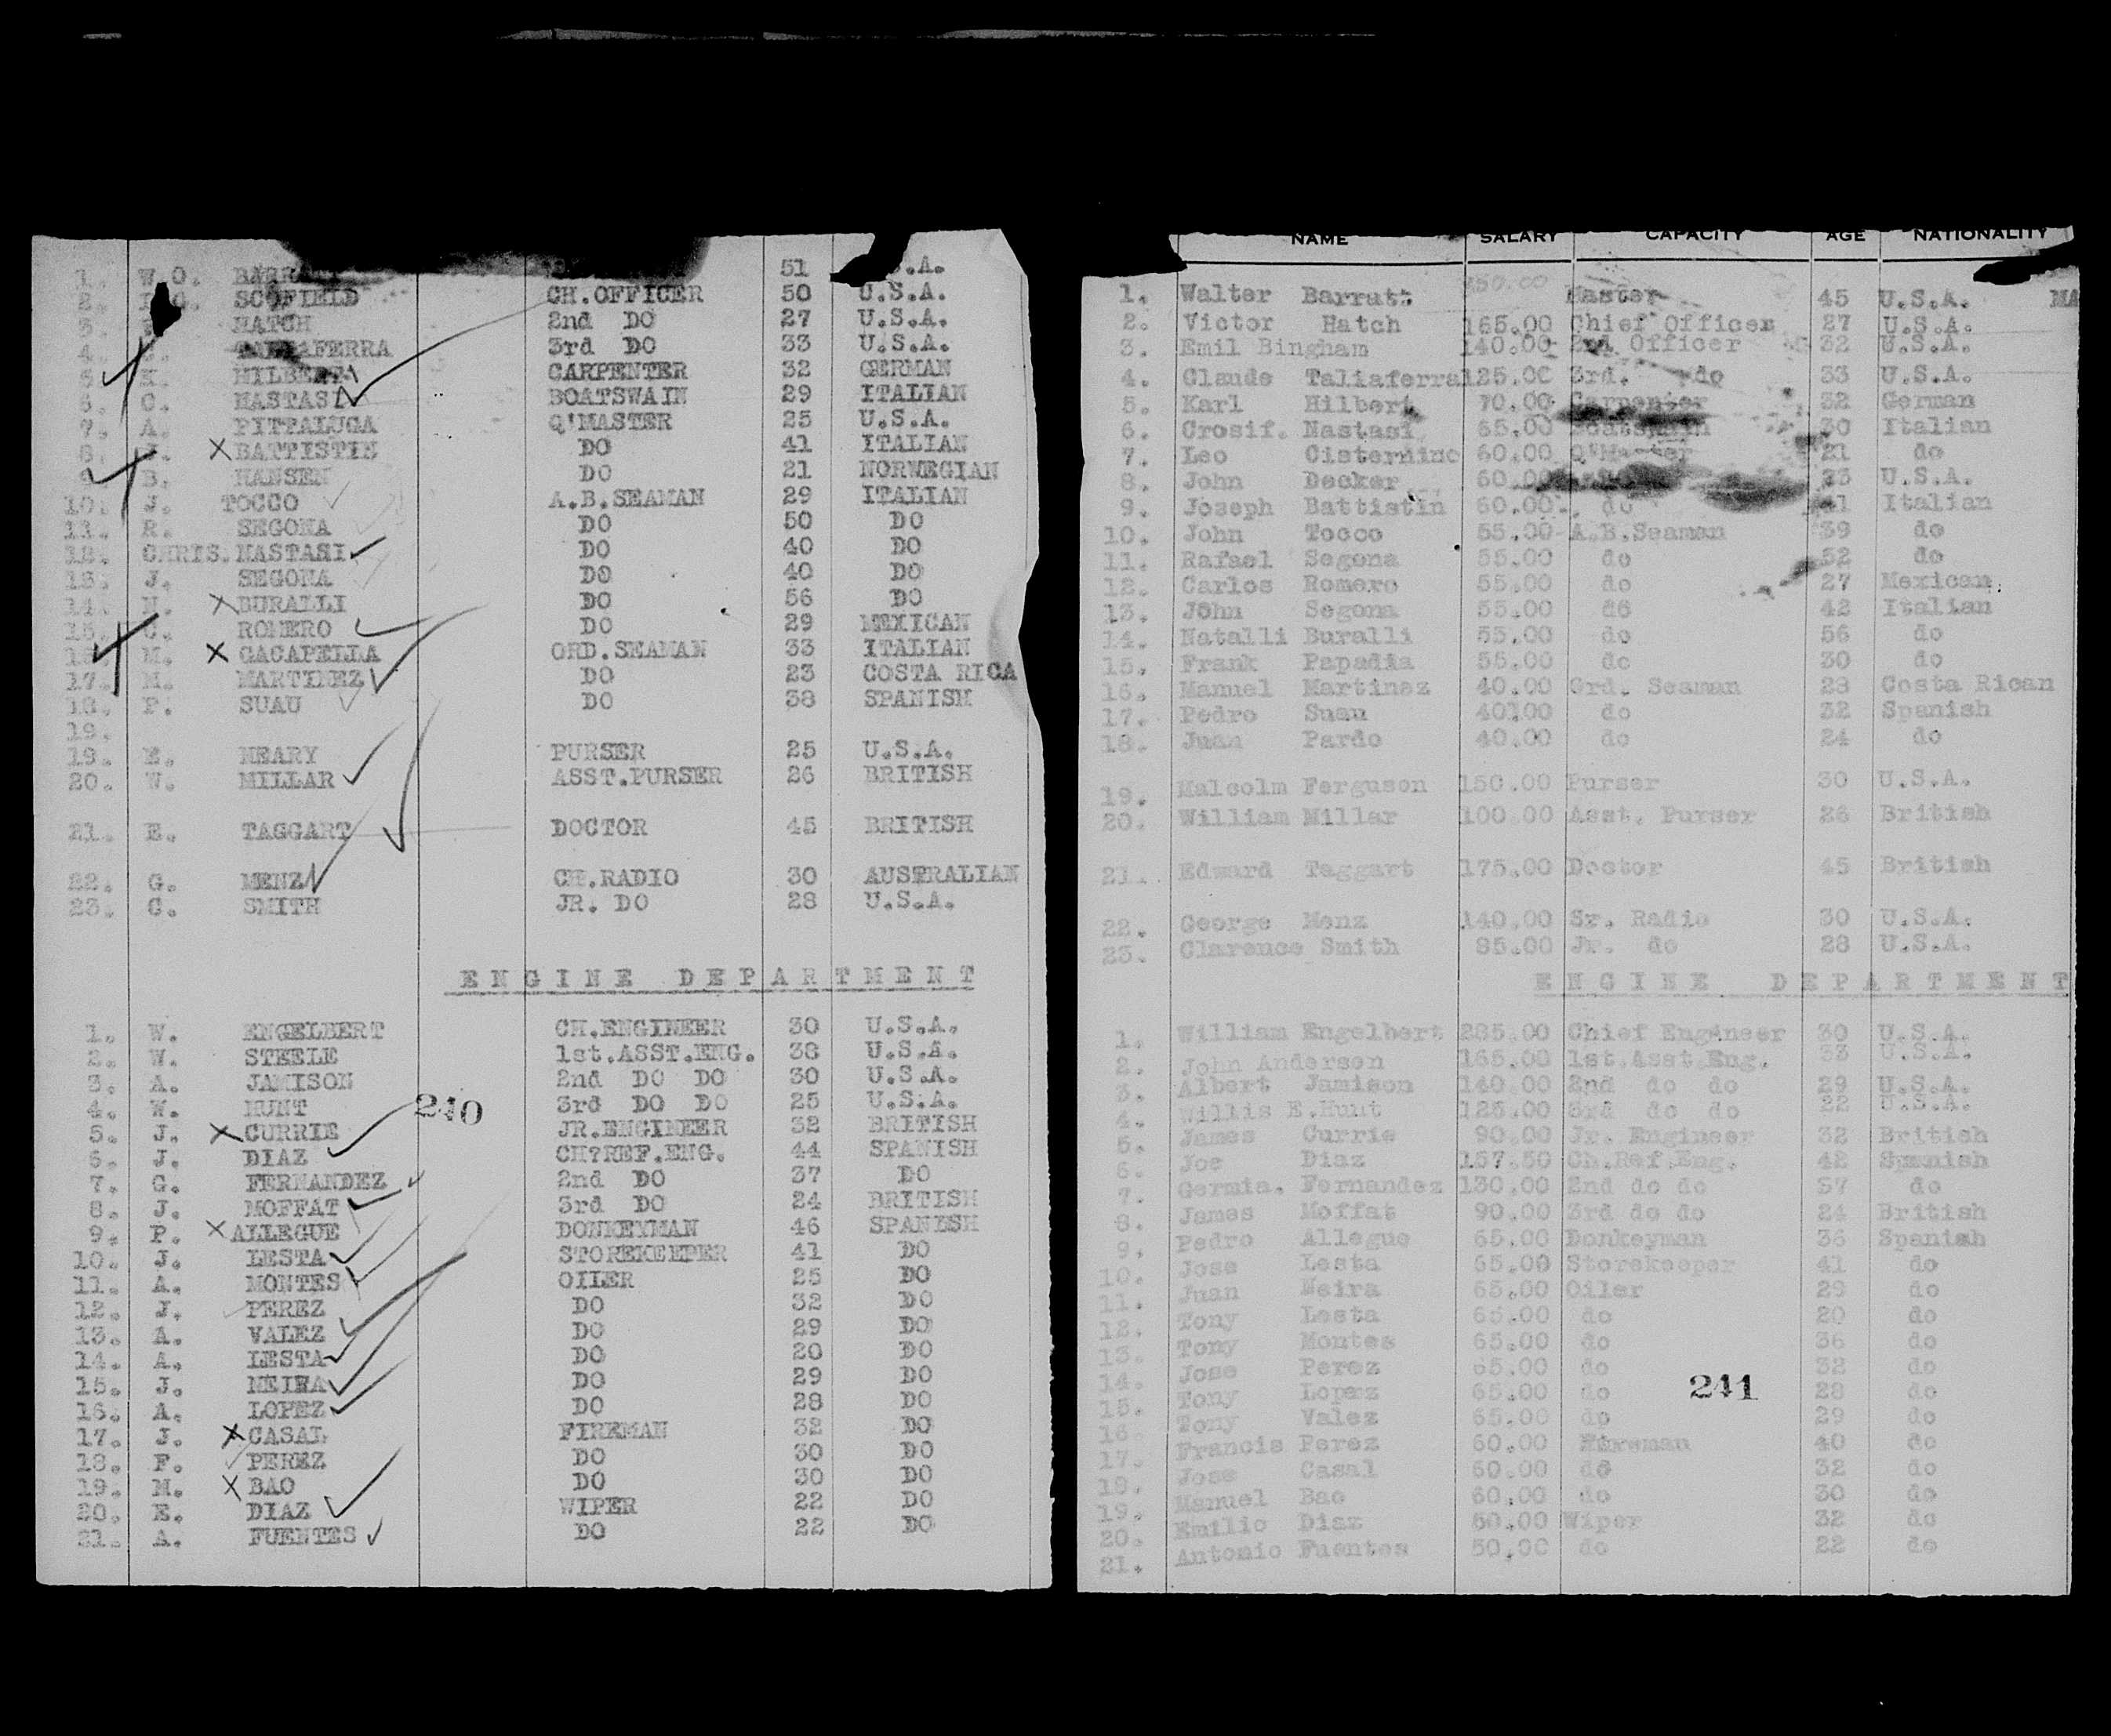 1. W.O. BARRA 51 .S.A.
2. SCOFIELD CH.OFFICER 50 U.S.A.
3. HATCH 2nd DO 27 U.S.A.
4. FERRA 3rd DO 33 U.S.A.
5. K. HILBERT CARPENTER 32 GERMAN
6. C. NASTASI BOATSWAIN 29 ITALIAN
7. A. PITTALUGA Q'MASTER 25 U.S.A.
8. J. X BATTISTIN DO 41 ITALIAN
9. B. HANSEN DO 21 NORWEGIAN
10. J. TOCCO A.B.SEAMAN 29 ITALIAN
11. R. SEGONA DO 50 DO
12. CHRIS. NASTASI DO 40 DO
13. J. SEGONA DO 40 DO
14. N. X BURALLI DO 56 DO
15. C. ROMERO DO 29 MEXICAN
16. M. X CACAPELLA ORD.SEAMAN 33 ITALIAN
17. M. MARTINEZ DO 23 COSTA RICA
18. P. SUAU DO 38 SPANISH
19.
19. E. NEARY PURSER 25 U.S.A.
20. W. MILLAR ASST.PURSER 26 BRITISH
21. E. TAGGART DOCTOR 45 BRITISH
22. G. MENZ CH.RADIO 30 AUSTRALIAN
23. C. SMITH JR. DO 28 U.S.A.
ENGINE DEPARTMENT
1. W. ENGELBERT CH.ENGINEER 30 U.S.A.
2. W. STEELE 1st.ASST.ENG. 38 U.S.A.
3. A. JAMISON 2nd DO DO 30 U.S.A.
4. W. HUNT 3rd DO DO 25 U.S.A.
240
5. J. X CURRIE JR.ENGINEER 32 BRITISH
6. J. DIAZ CH?REF.ENG. 44 SPANISH
7. G. FERNANDEZ 2nd DO 37 DO
8. J. MOFFAT 3rd DO 24 BRITISH
9. P. X ALLEGUE DONKEYMAN 46 SPANISH
10. J. LESTA STOREKEEPER 41 DO
11. A. MONTES OILER 25 DO
12. J. PEREZ DO 32 DO
13. A. VALEZ DO 29 DO
14. A. LESTA DO 20 DO
15. J. NEIRA DO 29 DO
16. A. LOPEZ DO 28 DO
17. J. X CASAL FIREMAN 32 DO
18. F. PEREZ DO 30 DO
19. M. X BAO DO 30 DO
20. E. DIAZ WIPER 22 DO
21. A. FUENTES DO 22 DO
NAME SALARY CAPACITY AGE NATIONALITY
1. Walter Barratt 350.00 Master 45 U.S.A. MA
2. Victor Hatch 165.00 Chief Officer 27 U.S.A.
3. Emil Bingham 140.00 2nd Officer 32 U.S.A.
4. Claude Taliaferra 125.00 3rd. do 33 U.S.A.
5. Karl Hilbert 70.00 Carpenter 32 German
6. Crosif. Nastasi 65.00 Boatswain 30 Italian
7. Leo Cisternino 60.00 Q'Master 21 do
8. John Decker 60.00 U.S.A.
9. Joseph Battistin 60.00 do 41 Italian
10. John Tocco 55.00 A.B.Seaman 39 do
11. Rafael Segona 55.00 do 52 do
12. Carlos Romero 55.00 do 27 Mexican
13. John Segona 55.00 do 42 Italian
14. Natalli Buralli 55.00 do 56 do
15. Frank Papadia 55.00 do 30 do
16. Manuel Martinez 40.00 Ord. Seaman 28 Costa Rican
17. Pedro Suau 40100 do 32 Spanish
18. Juan Pardo 40.00 do 24 do
19. Malcolm Ferguson 150.00 Purser 30 U.S.A.
20. William Millar 100.00 Asst. Purser 26 British
21. Edward Taggart 175.00 Doctor 45 British
22. George Menz 140.00 Sr. Radio 30 U.S.A.
23. Clarence Smith 85.00 Jr. do 28 U.S.A.
ENGINE DEPARTMENT
1. William Engelbert 285.00 Chief Engineer 30 U.S.A.
2. John Anderson 165.00 1st.Asst.Eng. 33 U.S.A.
3. Albert Jamison 140.00 2nd do do 29 U.S.A.
4. Willis E.Hunt 125.00 3rd do do 22 U.S.A.
5. James Currie 90.00 Jr. Engineer 32 British
6. Joe Diaz 157.50 Ch.Ref.Eng. 42 Spanish
7. Germia. Fernandez 130.00 2nd do do 37 do
8. James Moffat 90.00 3rd do do 24 British
9. Pedro Allegue 65.00 Donkeyman 36 Spanish
10. Jose Lesta 65.00 Storekeeper 41 do
11. Juan Neira 65.00 Oiler 29 do
12. Tony Lesta 65.00 do 20 do
13. Tony Montes 65.00 do 36 do
14. Jose Perez 65.00 do 32 do
241
15. Tony Lopez 65.00 do 28 do
16. Tony Valez 65.00 do 29 do
17. Francis Perez 60.00 Fireman 40 do
18. Jose Casal 60.00 do 32 do
19. Manuel Bao 60.00 do 30 do
20. Emilio Diaz 50.00 Wiper 32 do
21. Antonio Fuentes 50.00 do 22 do